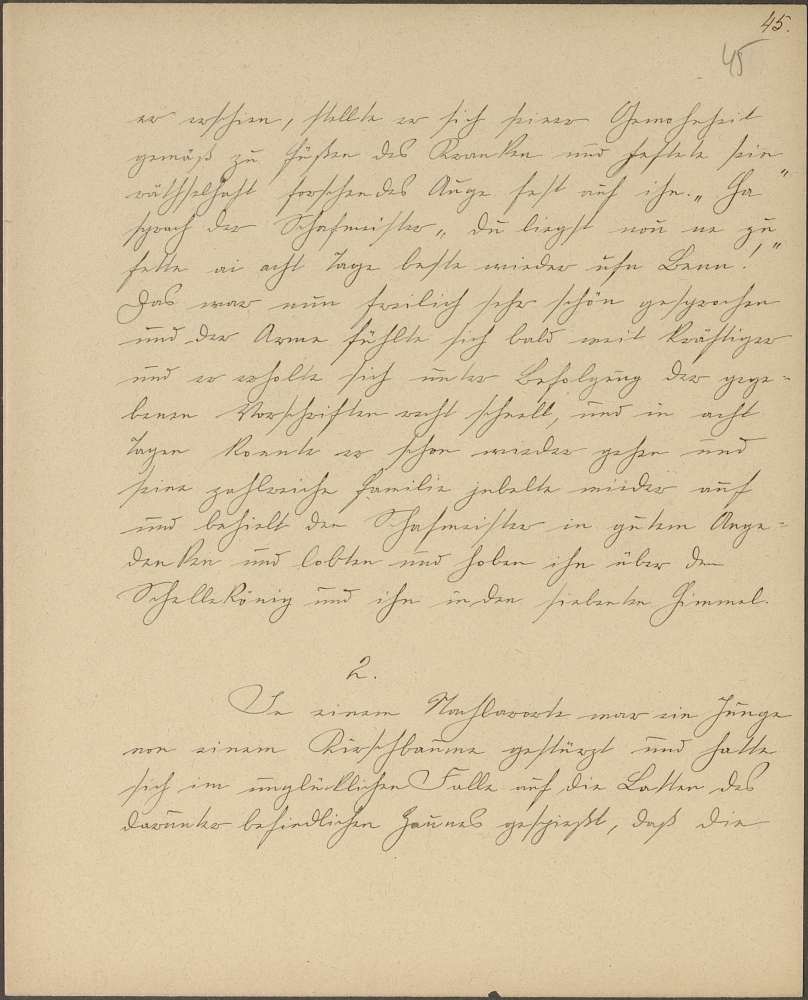 45.
45
er erschien, stellte er sich seiner Gewohnheit
gemäß zu Füßen des Kranken und heftete sein
räthselhaft forschendes Auge fest auf ihn. „Ha"
sprach der Schafmeister, „du liegst nou ne zu
feste ai acht Tage beste wieder ufn Benn!"
Das war nun freilich sehr schön gesprochen
und der Arme fühlte sich bald weit kräftiger
und er erholte sich unter Befolgung der gege-
benen Vorschriften recht schnell, und in acht
Tagen konnte er schon wieder gehen und
seine zahlreiche Familie jubelte wieder auf
und behielt den Schafmeister in gutem Ange-
denken und lobten und hoben ihn über den
Schellekönig und ihn in den siebenten Himmel.
2.
In einem Nachbarorte war ein Junge
von einem Kirschbaume gestürzt und hatte
sich im unglücklichen Falle auf die Latten des
darunter befindlichen Zaunes gespießt, daß die